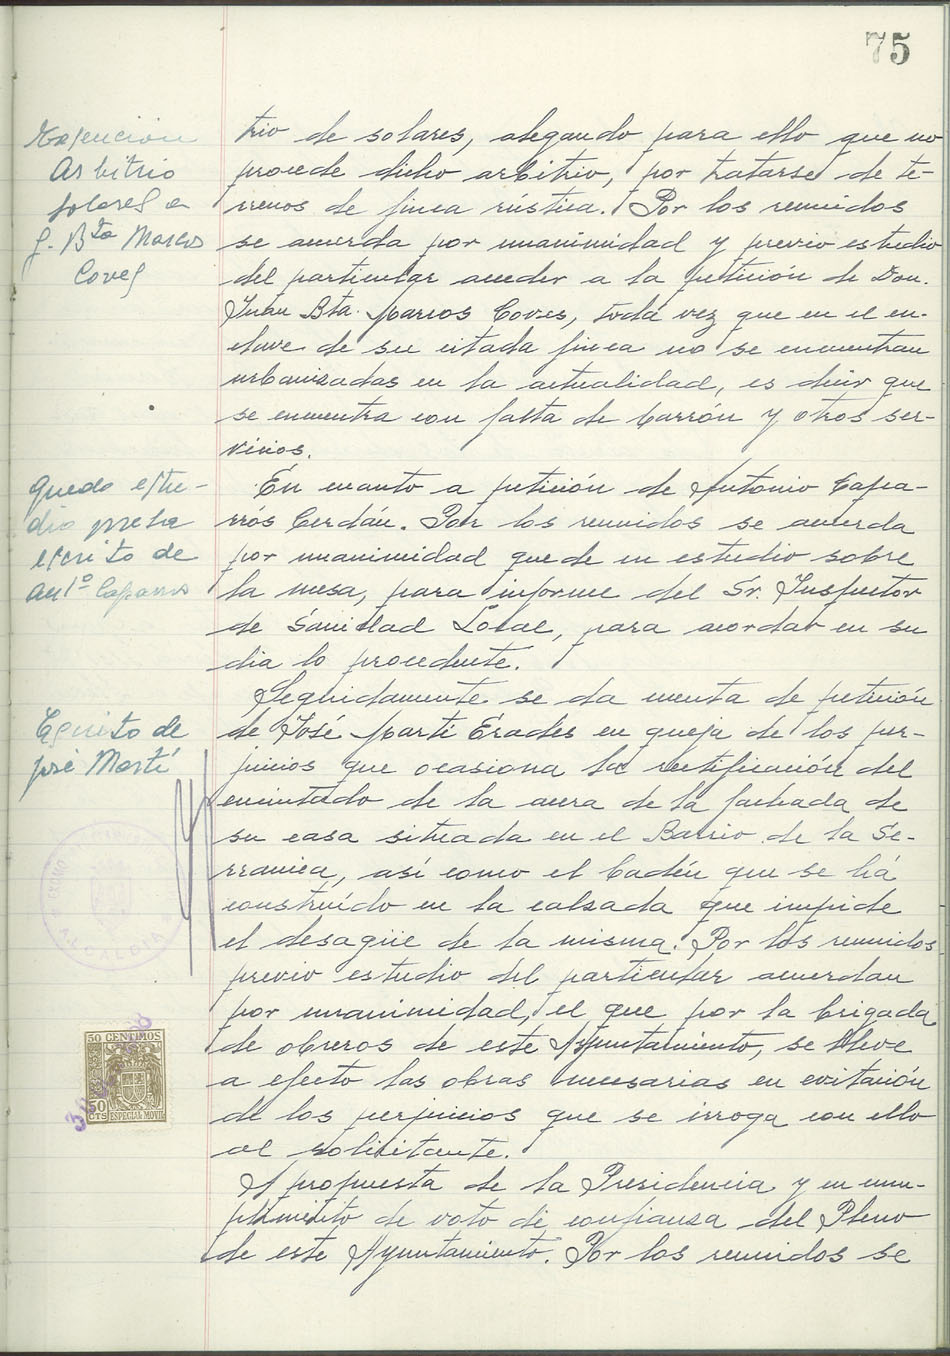 75
Exención
Arbitrio
solares a
J. Bta Marcos
Coves
trio de solares, alegando para ello que no
procede dicho arbitrio, por tratarse de te-
rrenos de finca rústica. Por los reunidos
se acuerda por unanimidad y previo estudio
del particular acceder a la petición de Don.
Juan Bta. Marcos Coves, toda vez que en el en-
clave de su citada finca no se encuentran
urbanizadas en la actualidad, es decir que
se encuentra con falta de Carrón y otros ser-
vicios.
Queda estu-
dio
escrito de
Antº Caparros
En cuanto a petición de Antonio Capa-
rrós Cerdán. Por los reunidos se acuerda
por unanimidad quede en estudio sobre
la mesa, para informe del Sr. Inspector
de Sanidad Local, para acordar en su
dia lo procedente.
Escrito de
José Martí
Seguidamente se da cuenta de petición
de José Martí Erades en queja de los per-
juicios que ocasiona la rectificación del
encintado de la acera de la fachada de
su casa situada en el Barrio de la Se-
rranica, así como el badén que se há
construído en la calzada que impide
el desagüe de la misma. Por los reunidos
previo estudio del particular acuerdan
por unanimidad, el que por la brigada
de obreros de este Ayuntamiento, se lleve
a efecto las obras necesarias en evitación
de los perjuicios que se irroga con ello
al solicitante.
A propuesta de la Presidencia y en cum-
plimiento de voto de confianza del Pleno
de este Ayuntamiento. Por los reunidos se
ALCALDIA
50 CENTIMOS
50
CTS
ESPECIAL MOVIL